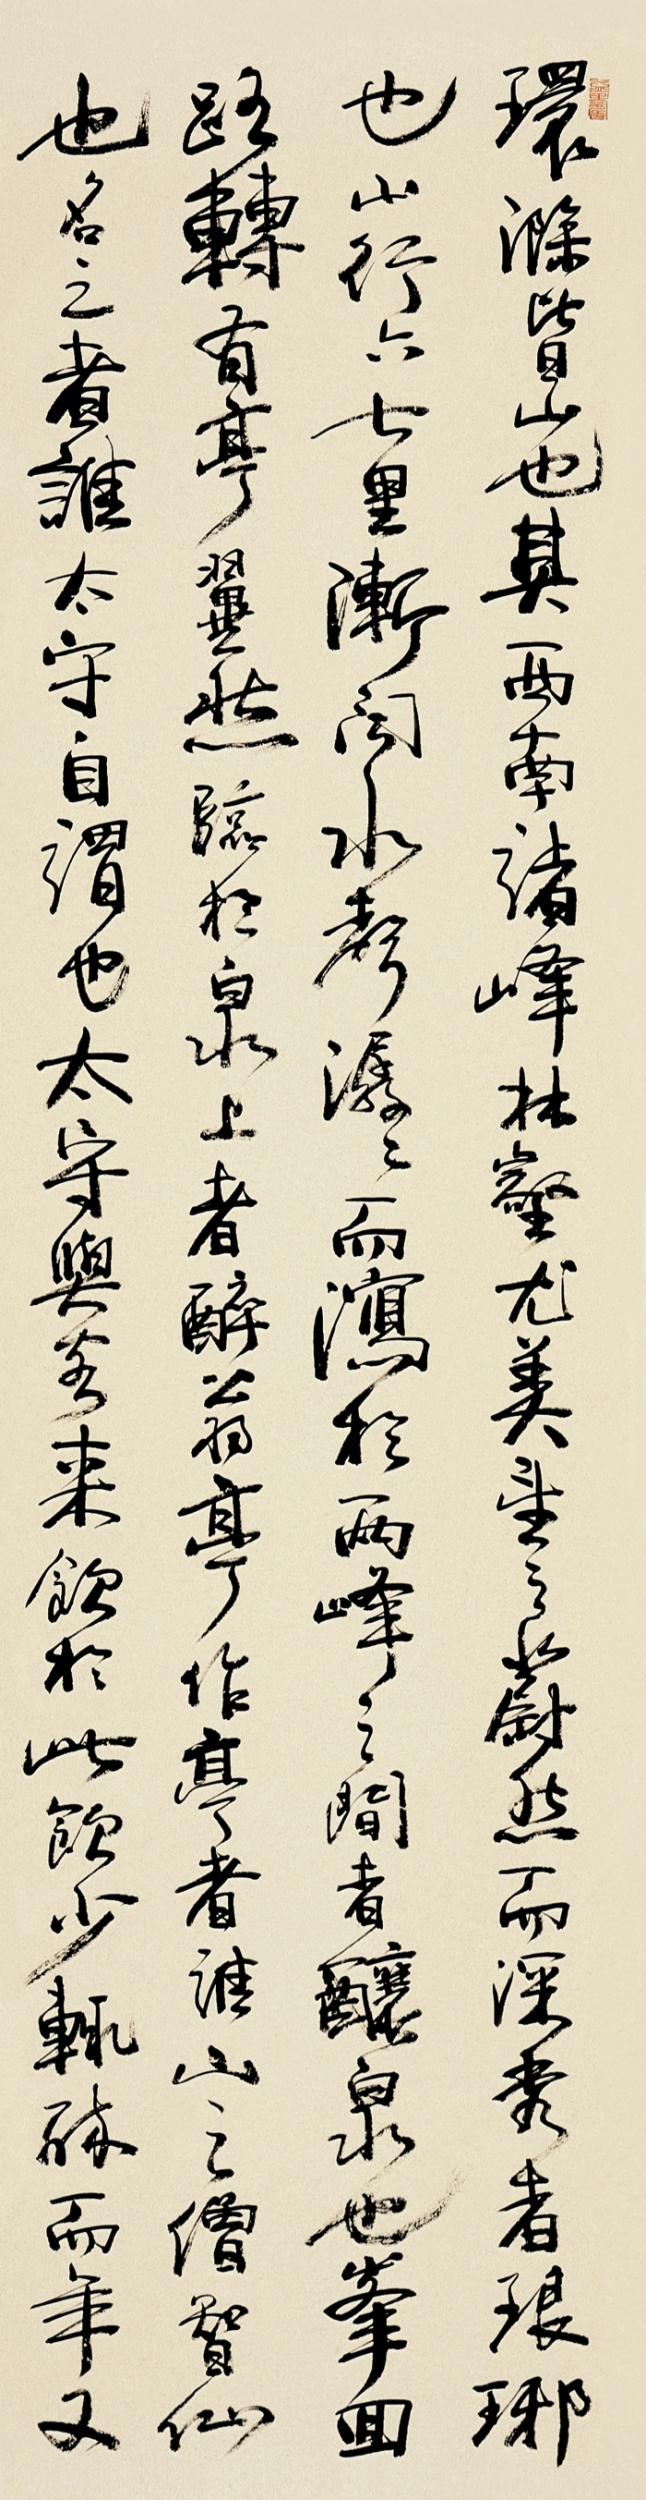 環滁皆山也其西南諸峰林壑尤美望之蔚然而深秀者琅琊
也山行六七里漸聞水聲潺々而瀉於兩峰之間者釀泉也峯回
路轉有亭翼然臨於泉上者醉翁亭作亭者誰山之僧智仙
也名之者誰太守自謂也太守與客来飲於此飲少輒醉而年又